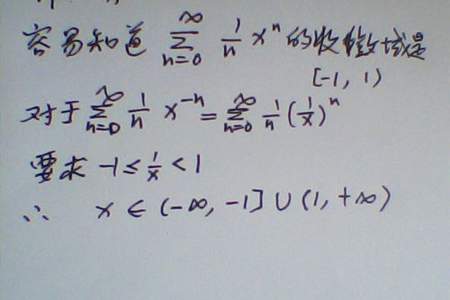 容易知道 ∞∑n=0 1/n xⁿ 的收敛域是
[-1, 1)
对于 ∞∑n=0 1/n x⁻ⁿ = ∞∑n=0 1/n (1/x)ⁿ
要求 -1 ≤ 1/x < 1
∴ x ∈ (-∞, -1] ∪ (1, +∞)